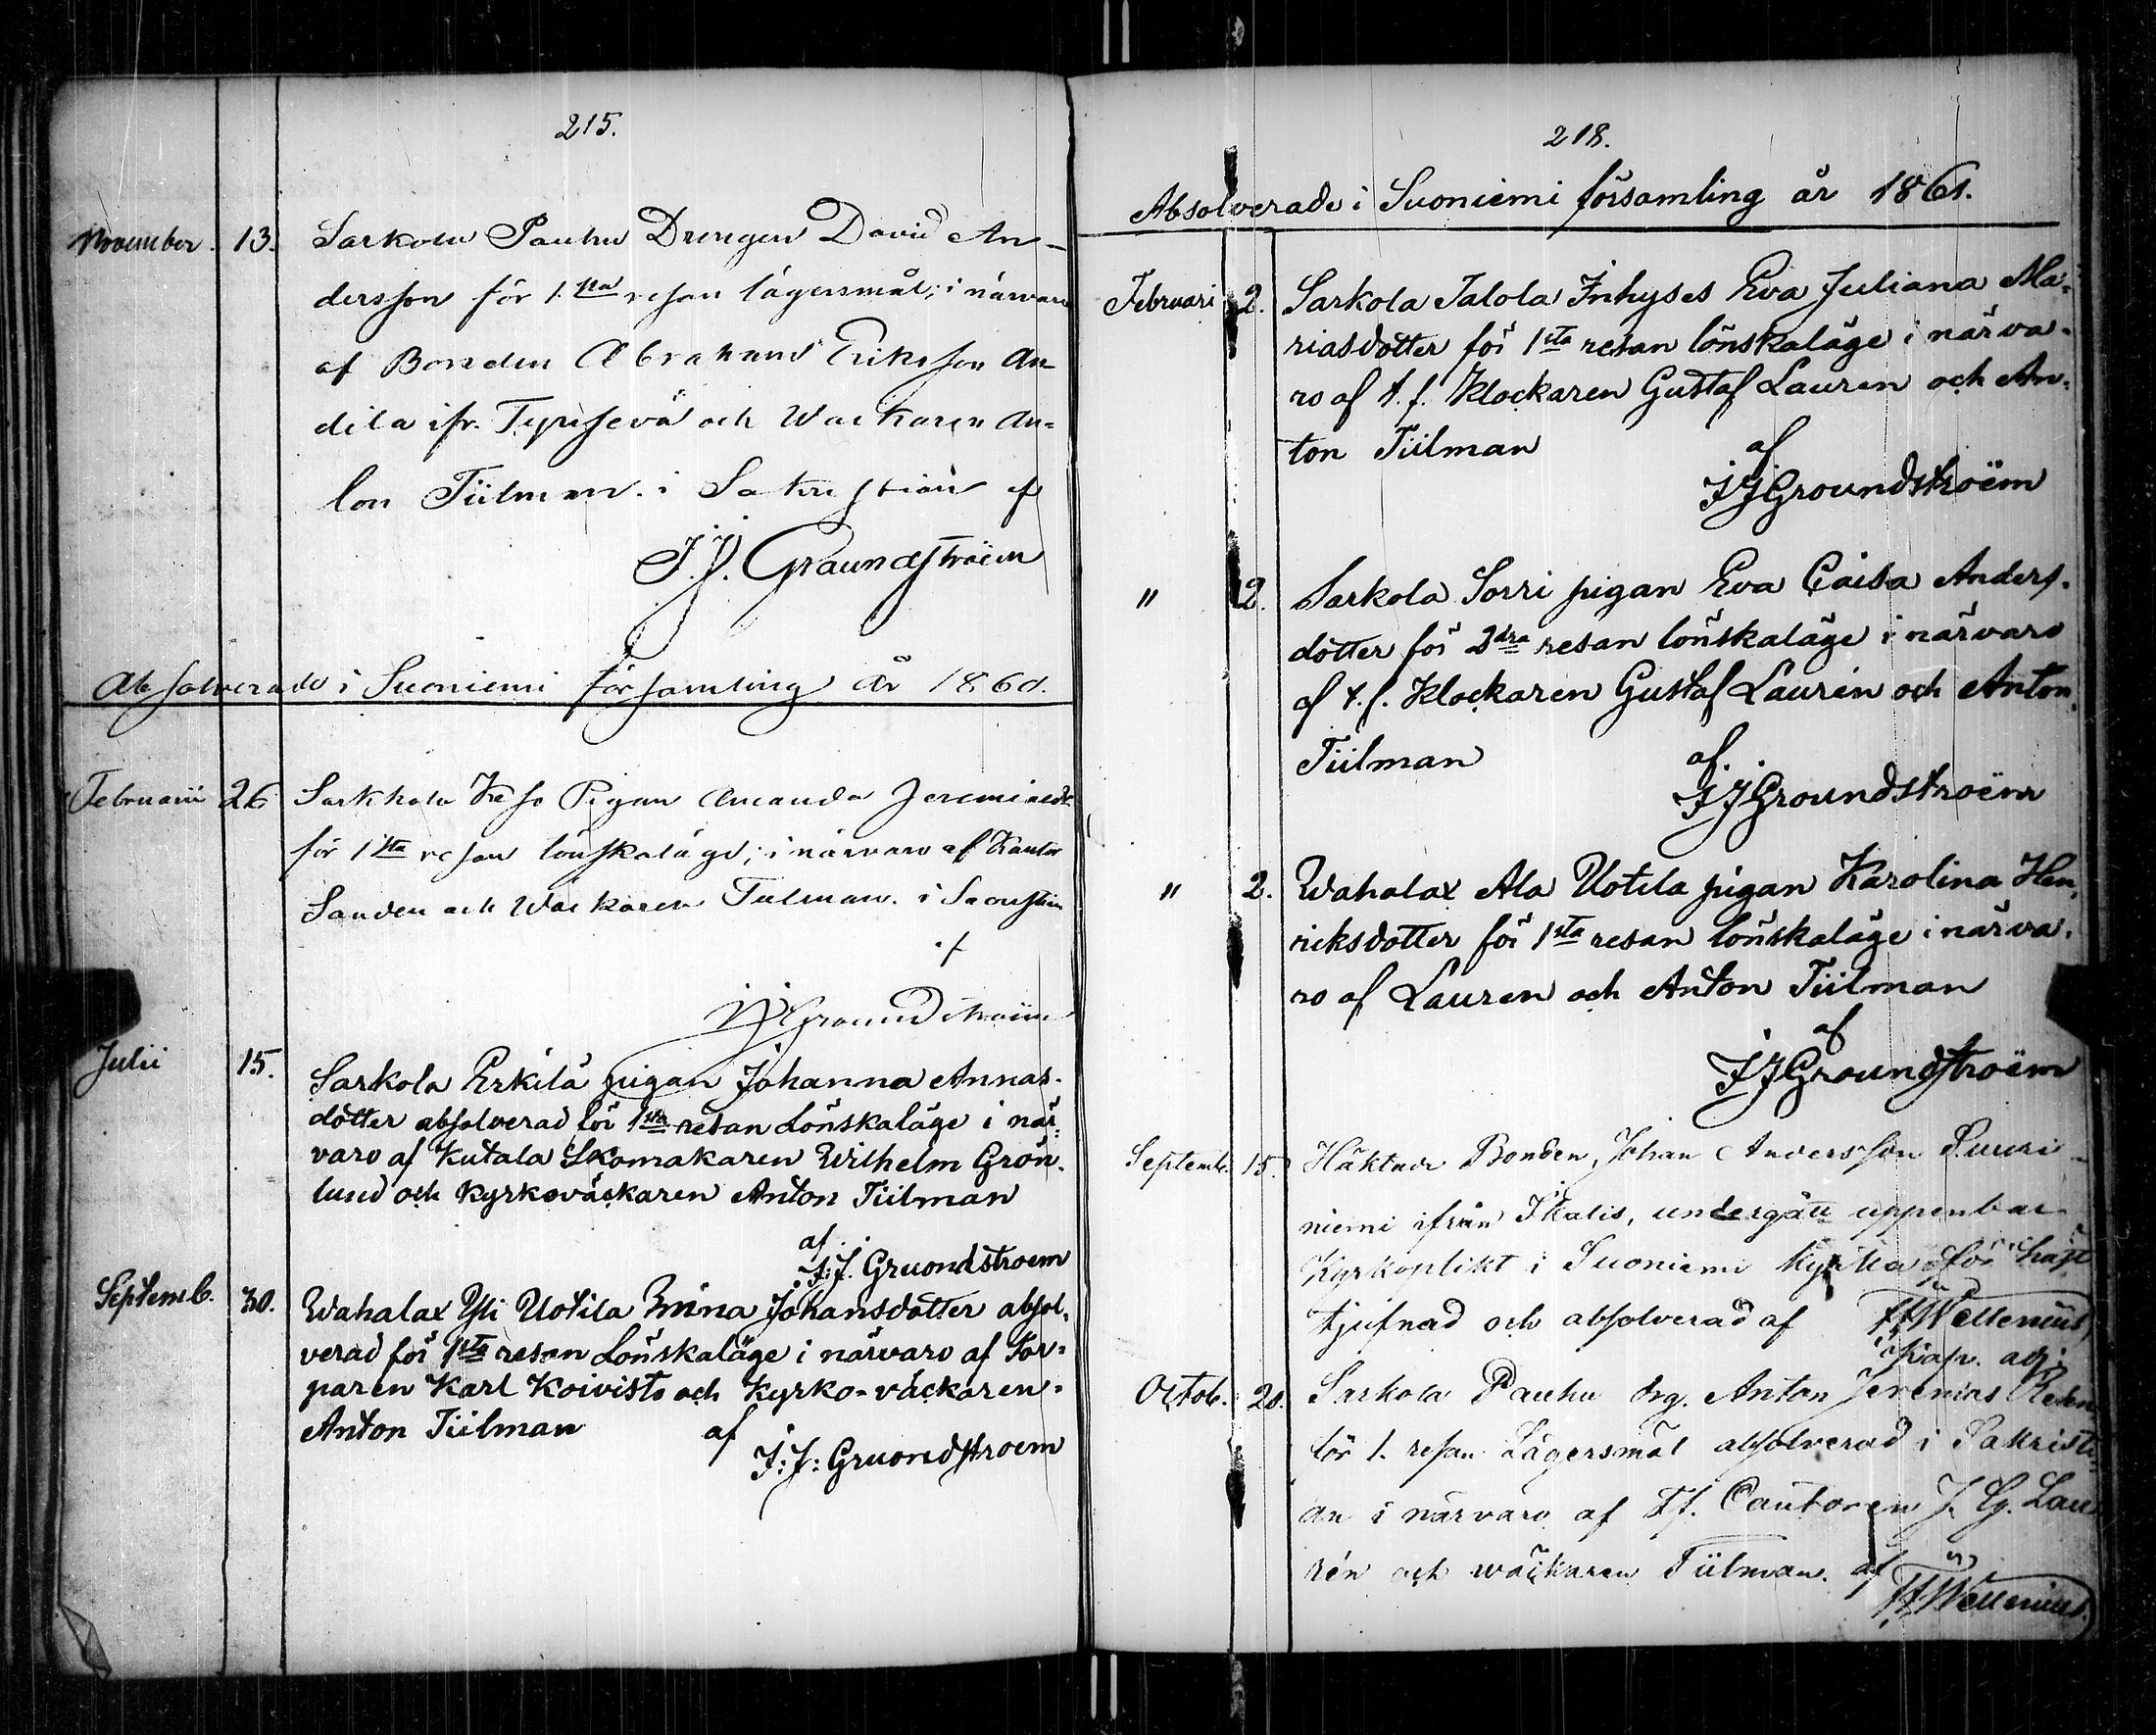 215.
November. 13. Sarkola Pauhu Drengen David An-
dersson för 1.sta resan lägersmål; i närvaro
af Bonden Abraham Eriksson An-
dila ifr. Tyrisevä och Wäckaren An=
ton Tiilman. i Sakristian af
J. J. Graundströem
Absolverade i Suoniemi församling år 1860.
Februarii 26 Sarkhola Keso Pigan Amanda Jeremiaedr
för 1sta resan lönskaläge; i närvaro af Kantor
Sanden och Wäckaren Tiilman. i Sacristian
af
JJGroundströem
Julii 15. Sarkola Erkilä pigan Johanna Annas-
dotter absolverad för 1sta resan Lönskaläge i när-
varo af Kutala Skomakaren Wilhelm Grön-
lund och Kyrkoväckaren Anton Tiilman
af
J:J. Gruondstroem
Septemb. 30. Wahalax Yli Uotila Mina Johansdotter absol-
verad för 1sta resan Lönskaläge i närvaro af Tor-
paren Karl Koivisto och Kyrko-väckaren-
Anton Tiilman af
J:J: Gruondstroem
218.
Absolverade i Suoniemi församling år 1861.
Februari 2. Sarkola Talola Inhyses Eva Juliana Ma-
riasdotter för 1sta resan lönskaläge i närva-
ro af t.f. Klockaren Gustaf Lauren och An-
ton Tiilman af
JJGroundstroëm
" 2. Sarkola Sorri pigan Eva Caisa Anders-
dotter för 2dra resan lönskaläge i närvaro
af t.f. Klockaren Gustaf Lauren och Anton
Tiilman af.
JJGroundstroëm
" 2. Wahalax Ala Uotila pigan Karolina Hen-
riksdotter för 1sta resan lönskaläge i närva-
ro af Lauren och Anton Tiilman
af
JJGroundstroëm
Septemb. 15. Häktade Bonden, Johan Andersson Suuri-
niemi ifrån Ikalis, undergått uppenbar
Kyrkoplikt i Suoniemi kyrka för häst
tjufnad och absolverad af Wellenius
Kap. adj.
Octob. 20. Sarkola Pauhu drg. Anton Jeremias
för 1. resan Lägersmål absolverad i Sakristi-
an i närvaro af Tf. Cantoren J. G. Lau
rén och wäckaren Tiilman. af
Wellenius.